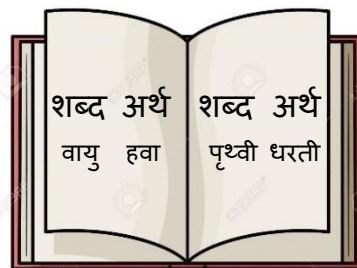 शब्द अर्थ
वायु हवा
शब्द अर्थ
पृथ्वी धरती